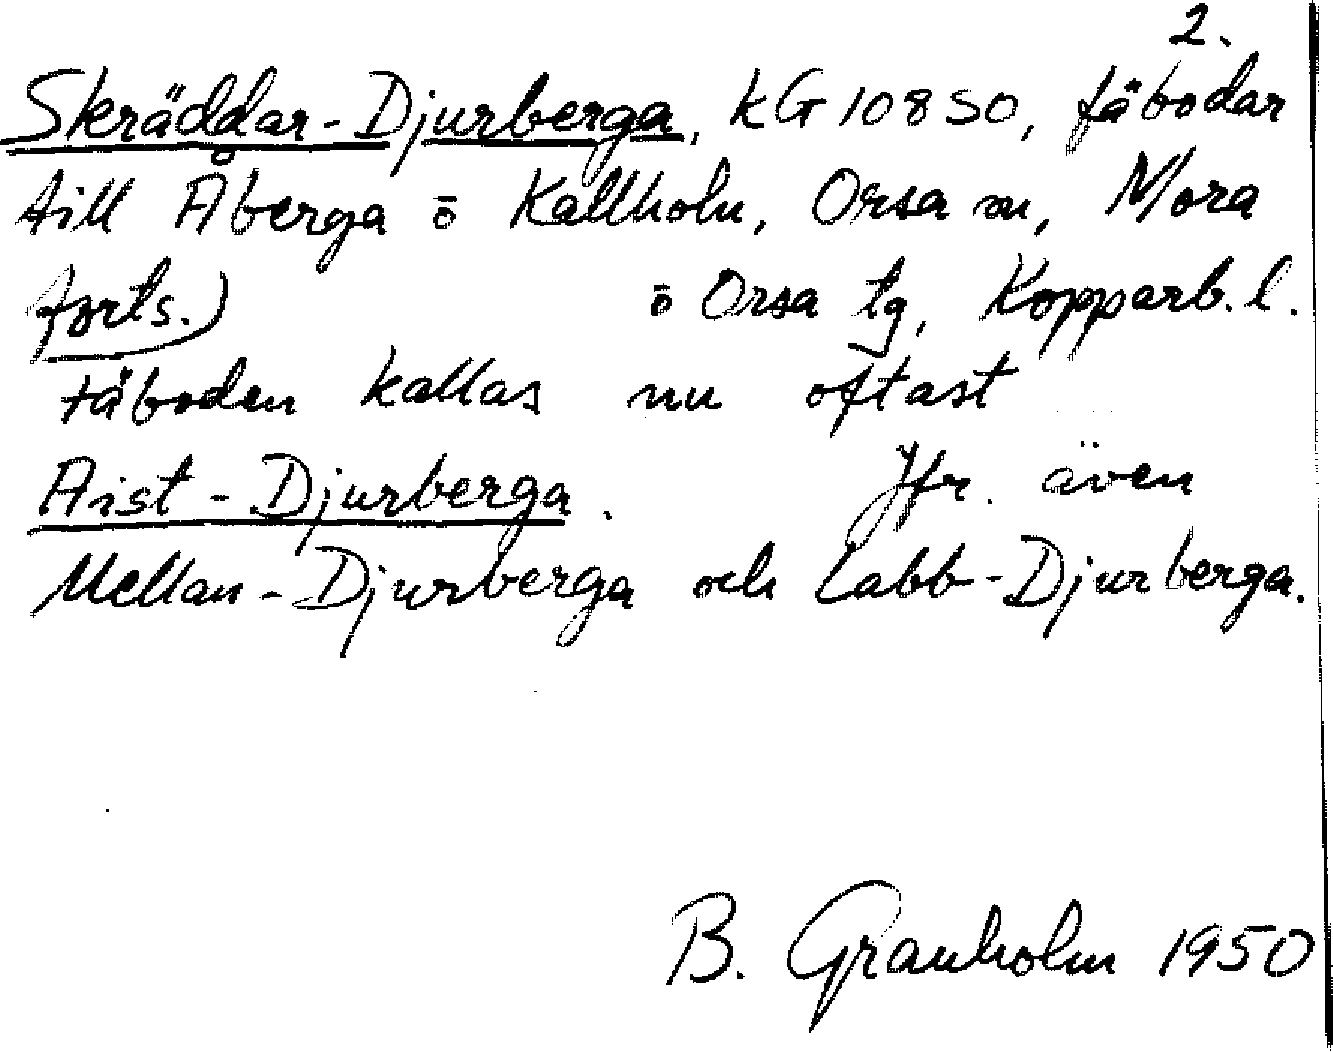 2.
Skräddar-Djurberga, kG 10850, fäbodar
till Åberga ö Kallholn, Orsa sn, Mora
forts.) ö Orsa tg, Kopparb. l.
Fäboden kallas nu oftast
Aist-Djurberga. Jfr. även
Mellan-Djurberga och Labb-Djurberga.
B. Granholm 1950